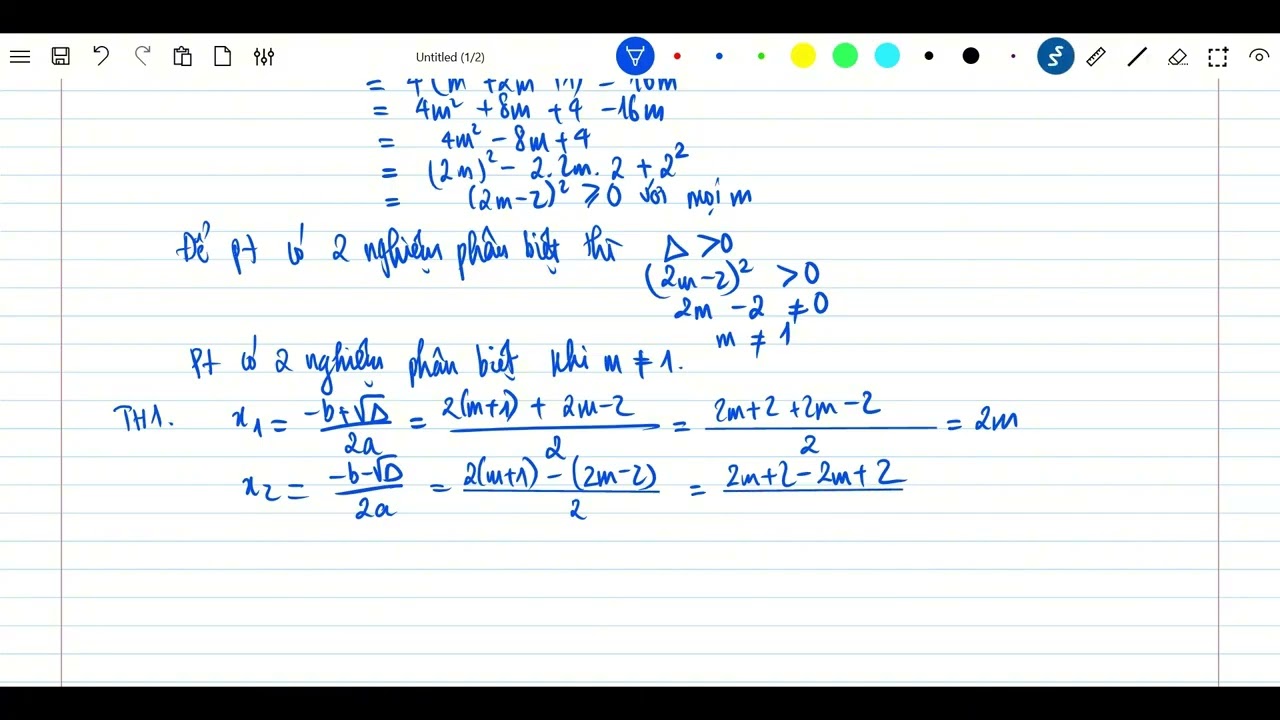 Untitled (1/2)
= 4(m +2m +1) - 16m
= 4m² + 8m + 4 - 16m
= 4m² - 8m + 4
= (2m)² - 2.2m.2 + 2²
= (2m-2)² ⩾ 0 với mọi m
Để pt có 2 nghiệm phân biệt thì Δ > 0
(2m-2)² > 0
2m - 2 ≠ 0
m ≠ 1
Pt có 2 nghiệm phân biệt khi m ≠ 1.
TH1. x₁ = (-b+√Δ)/2a = (2(m+1) + 2m-2)/2 = (2m+2+2m-2)/2 = 2m
x₂ = (-b-√Δ)/2a = (2(m+1) - (2m-2))/2 = 2m+2-2m+2